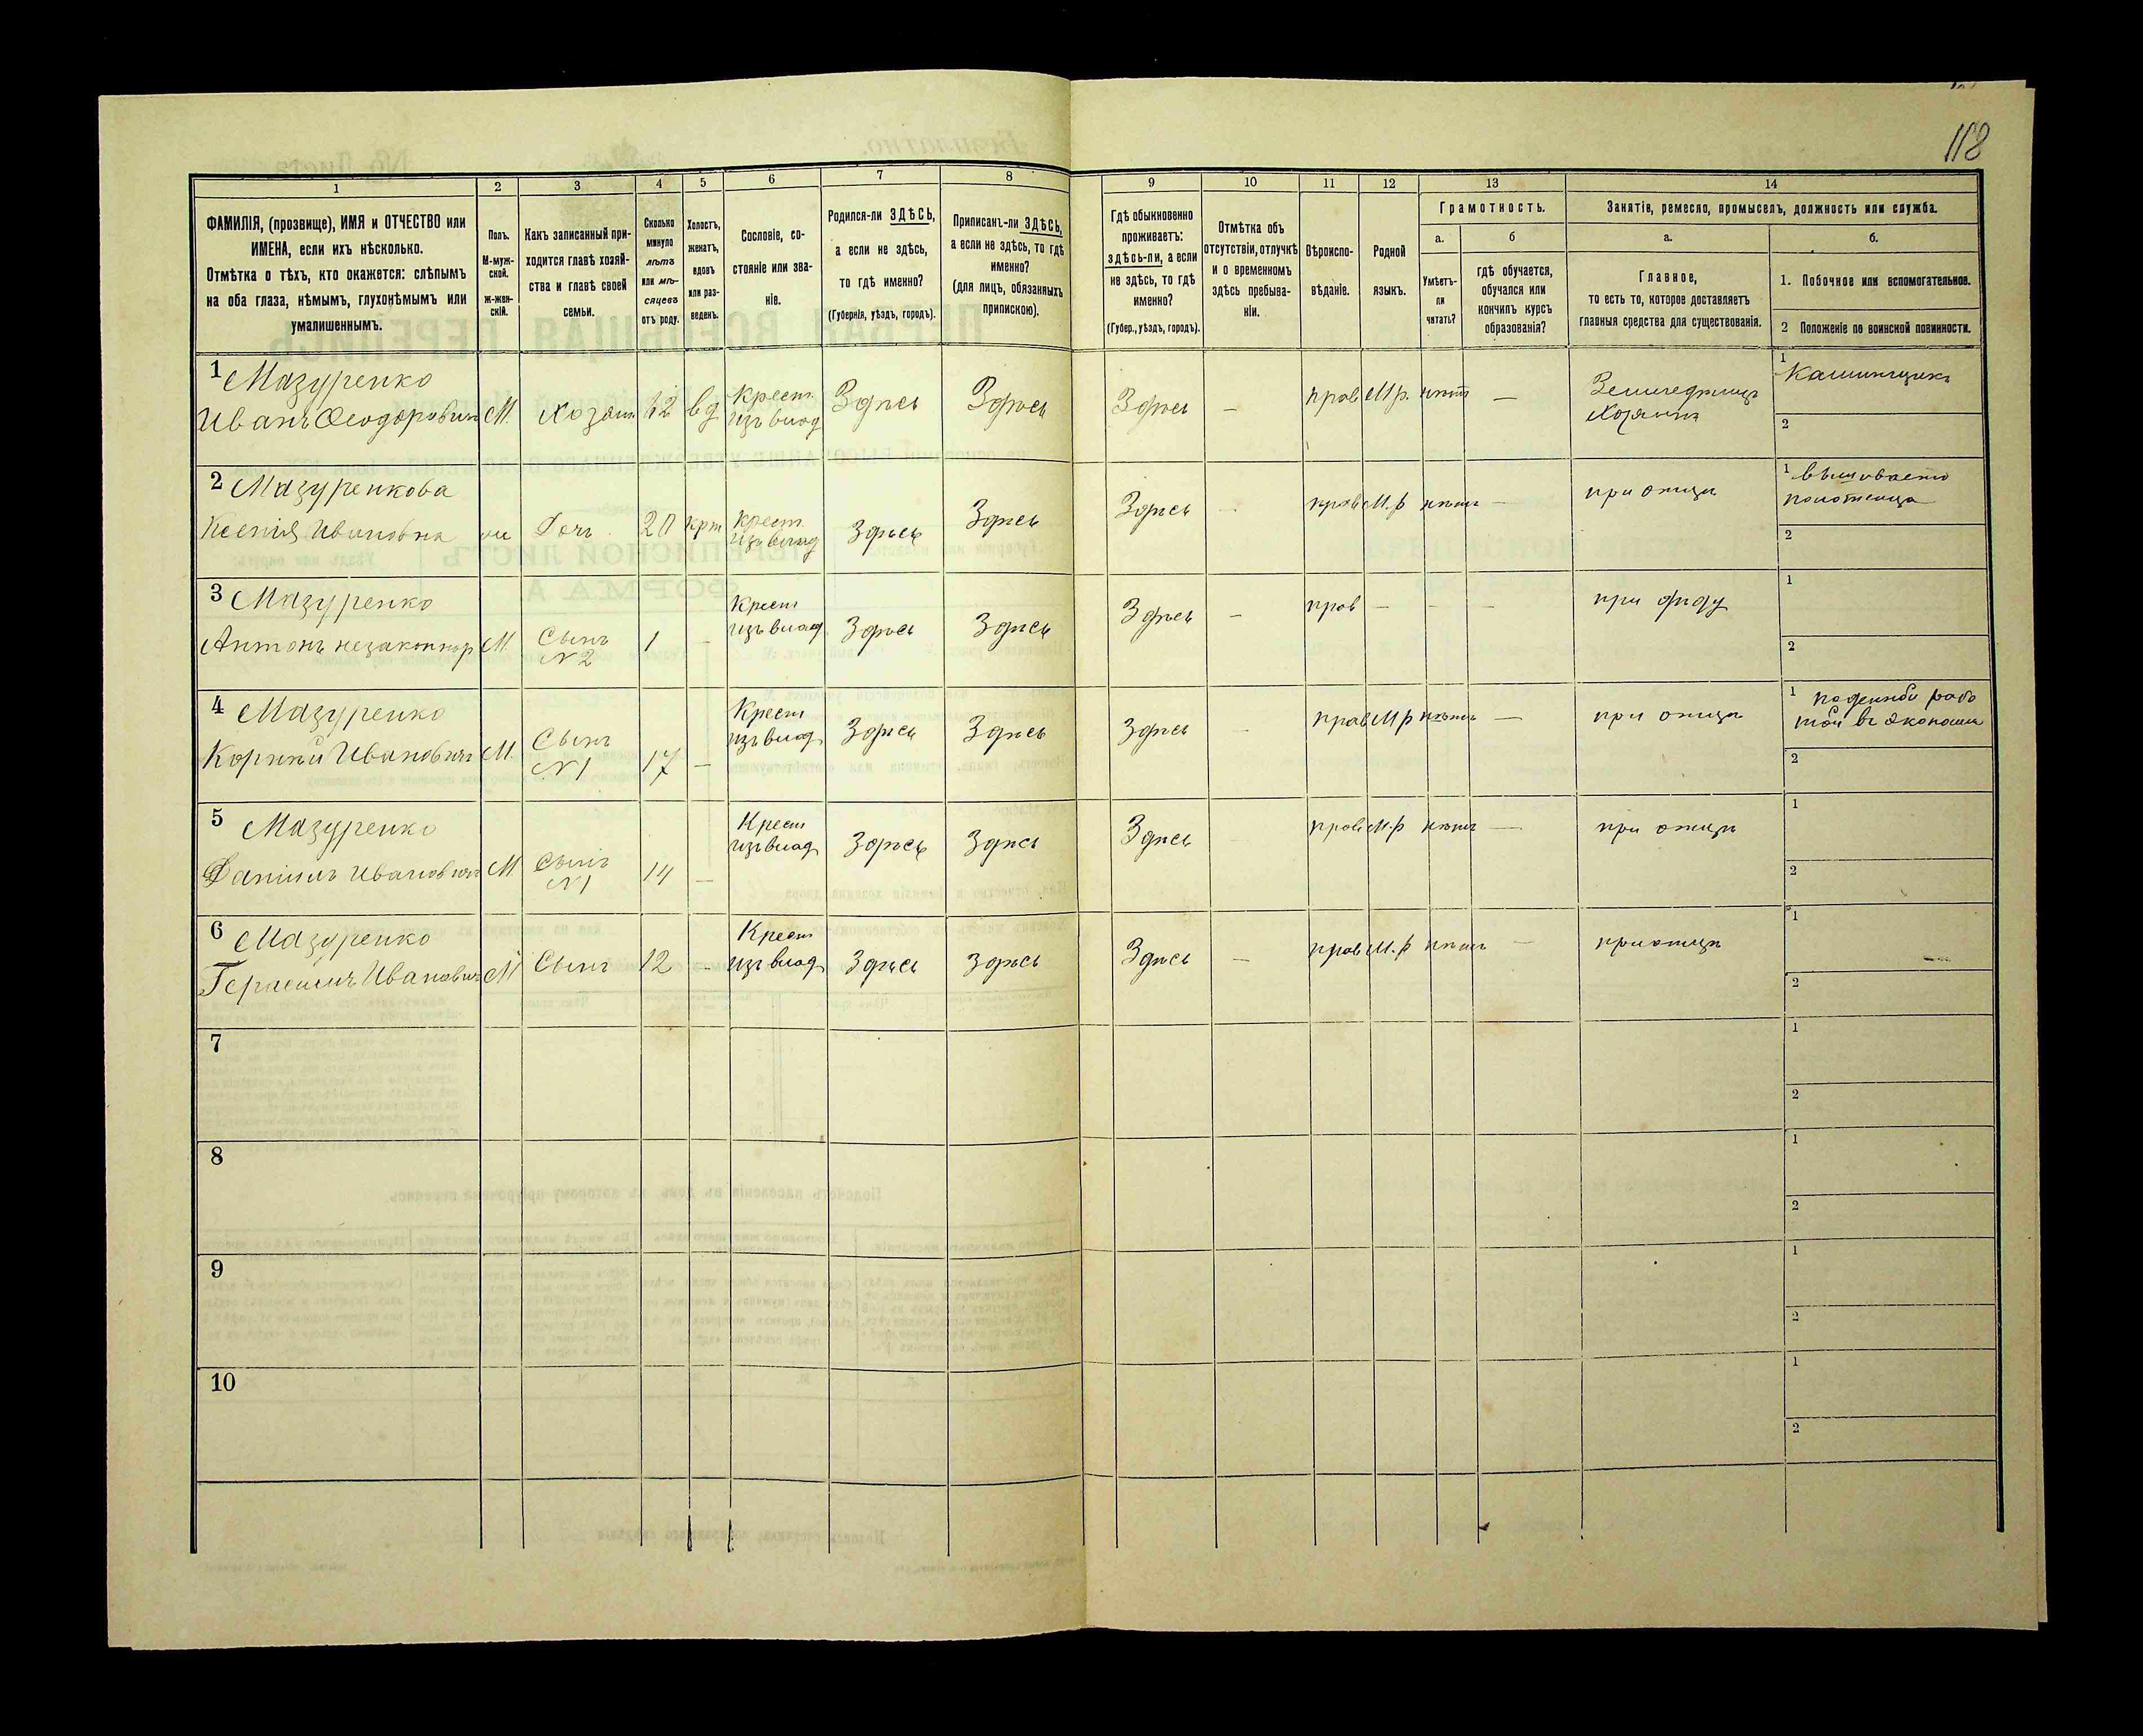 118
1 2 3 4 5 6 7 8 9 10 11 12 13 14
ФАМИЛІЯ, (прозвище), ИМЯ и ОТЧЕСТВО или
ИМЕНА, если ихъ нѣсколько.
Отмѣтка о тѣхъ, кто окажется: слѣпымъ
на оба глаза, нѣмымъ, глухонѣмымъ или
умалишеннымъ.
Полъ.
М-муж-
ской.
ж-жен-
скій.
Какъ записанный при-
ходится главѣ хозяй-
ства и главѣ своей
семьи.
Сколько
минуло
лѣтъ
или мѣ-
сяцевъ
отъ роду.
Холостъ,
женатъ,
вдовъ
или раз-
веденъ.
Сословіе, со-
стояніе или зва-
ніе.
Родился-ли ЗДѢСЬ,
а если не здѣсь,
то гдѣ именно?
(Губернія, уѣздъ, городъ).
Приписанъ-ли ЗДѢСЬ,
а если не здѣсь, то гдѣ
именно?
(для лицъ, обязанныхъ
припискою).
Гдѣ обыкновенно
проживаетъ:
здѣсь-ли, а если
не здѣсь, то гдѣ
именно?
(Губер., уѣздъ, городъ).
Отмѣтка объ
отсутствіи, отлучкѣ
и о временномъ
здѣсь пребыва-
ніи.
Вѣроиспо-
вѣданіе.
Родной
языкъ.
Грамотность.
а.
Умѣетъ-
ли
читать?
б
гдѣ обучается,
обучался или
кончилъ курсъ
образованія?
Занятіе, ремесло, промыселъ, должность или служба.
а.
Главное,
то есть то, которое доставляетъ
главныя средства для существованія.
б.
1. Побочное или вспомогательное.
2 Положеніе по воинской повинности.
1 Мазуренко
Иванъ Феодоровичъ М. Хозяин 42 вд Крест. изъ влад Здѣсь Здѣсь Здѣсь — прав М.р. нѣтъ — Земледѣлецъ Хозяинъ 1 2
2 Мазуренкова
Ксенія Ивановна Дочь 20 Крест. изъ влад Здѣсь Здѣсь Здѣсь прав М.р нѣтъ — при отцѣ 1 вышиваетъ полотенца 2
3 Мазуренко
Антонъ незаконнор М. Сынъ N 2 1 — Крест изъ влад Здѣсь Здѣсь Здѣсь — прав — — — при дѣду 1 2
4 Мазуренко
Корнѣй Ивановичъ М. Сынъ N 1 17 — Крест изъ влад Здѣсь Здѣсь Здѣсь прав М р нѣтъ — при отцѣ 1 поденной рабо
той въ экономіи 2
5 Мазуренко
Даніилъ Ивановичъ М Сынъ N 1 14 — Крест изъ влад Здѣсь Здѣсь Здѣсь прав М.р нѣтъ — при отцѣ 1 2
6 Мазуренко
Герасимъ Ивановичъ М Сынъ 12 — Крест изъ влад Здѣсь Здѣсь Здѣсь — прав М.р нѣтъ — при отцѣ 1 2
7 1 2
8 1 2
9 1 2
10 1 2